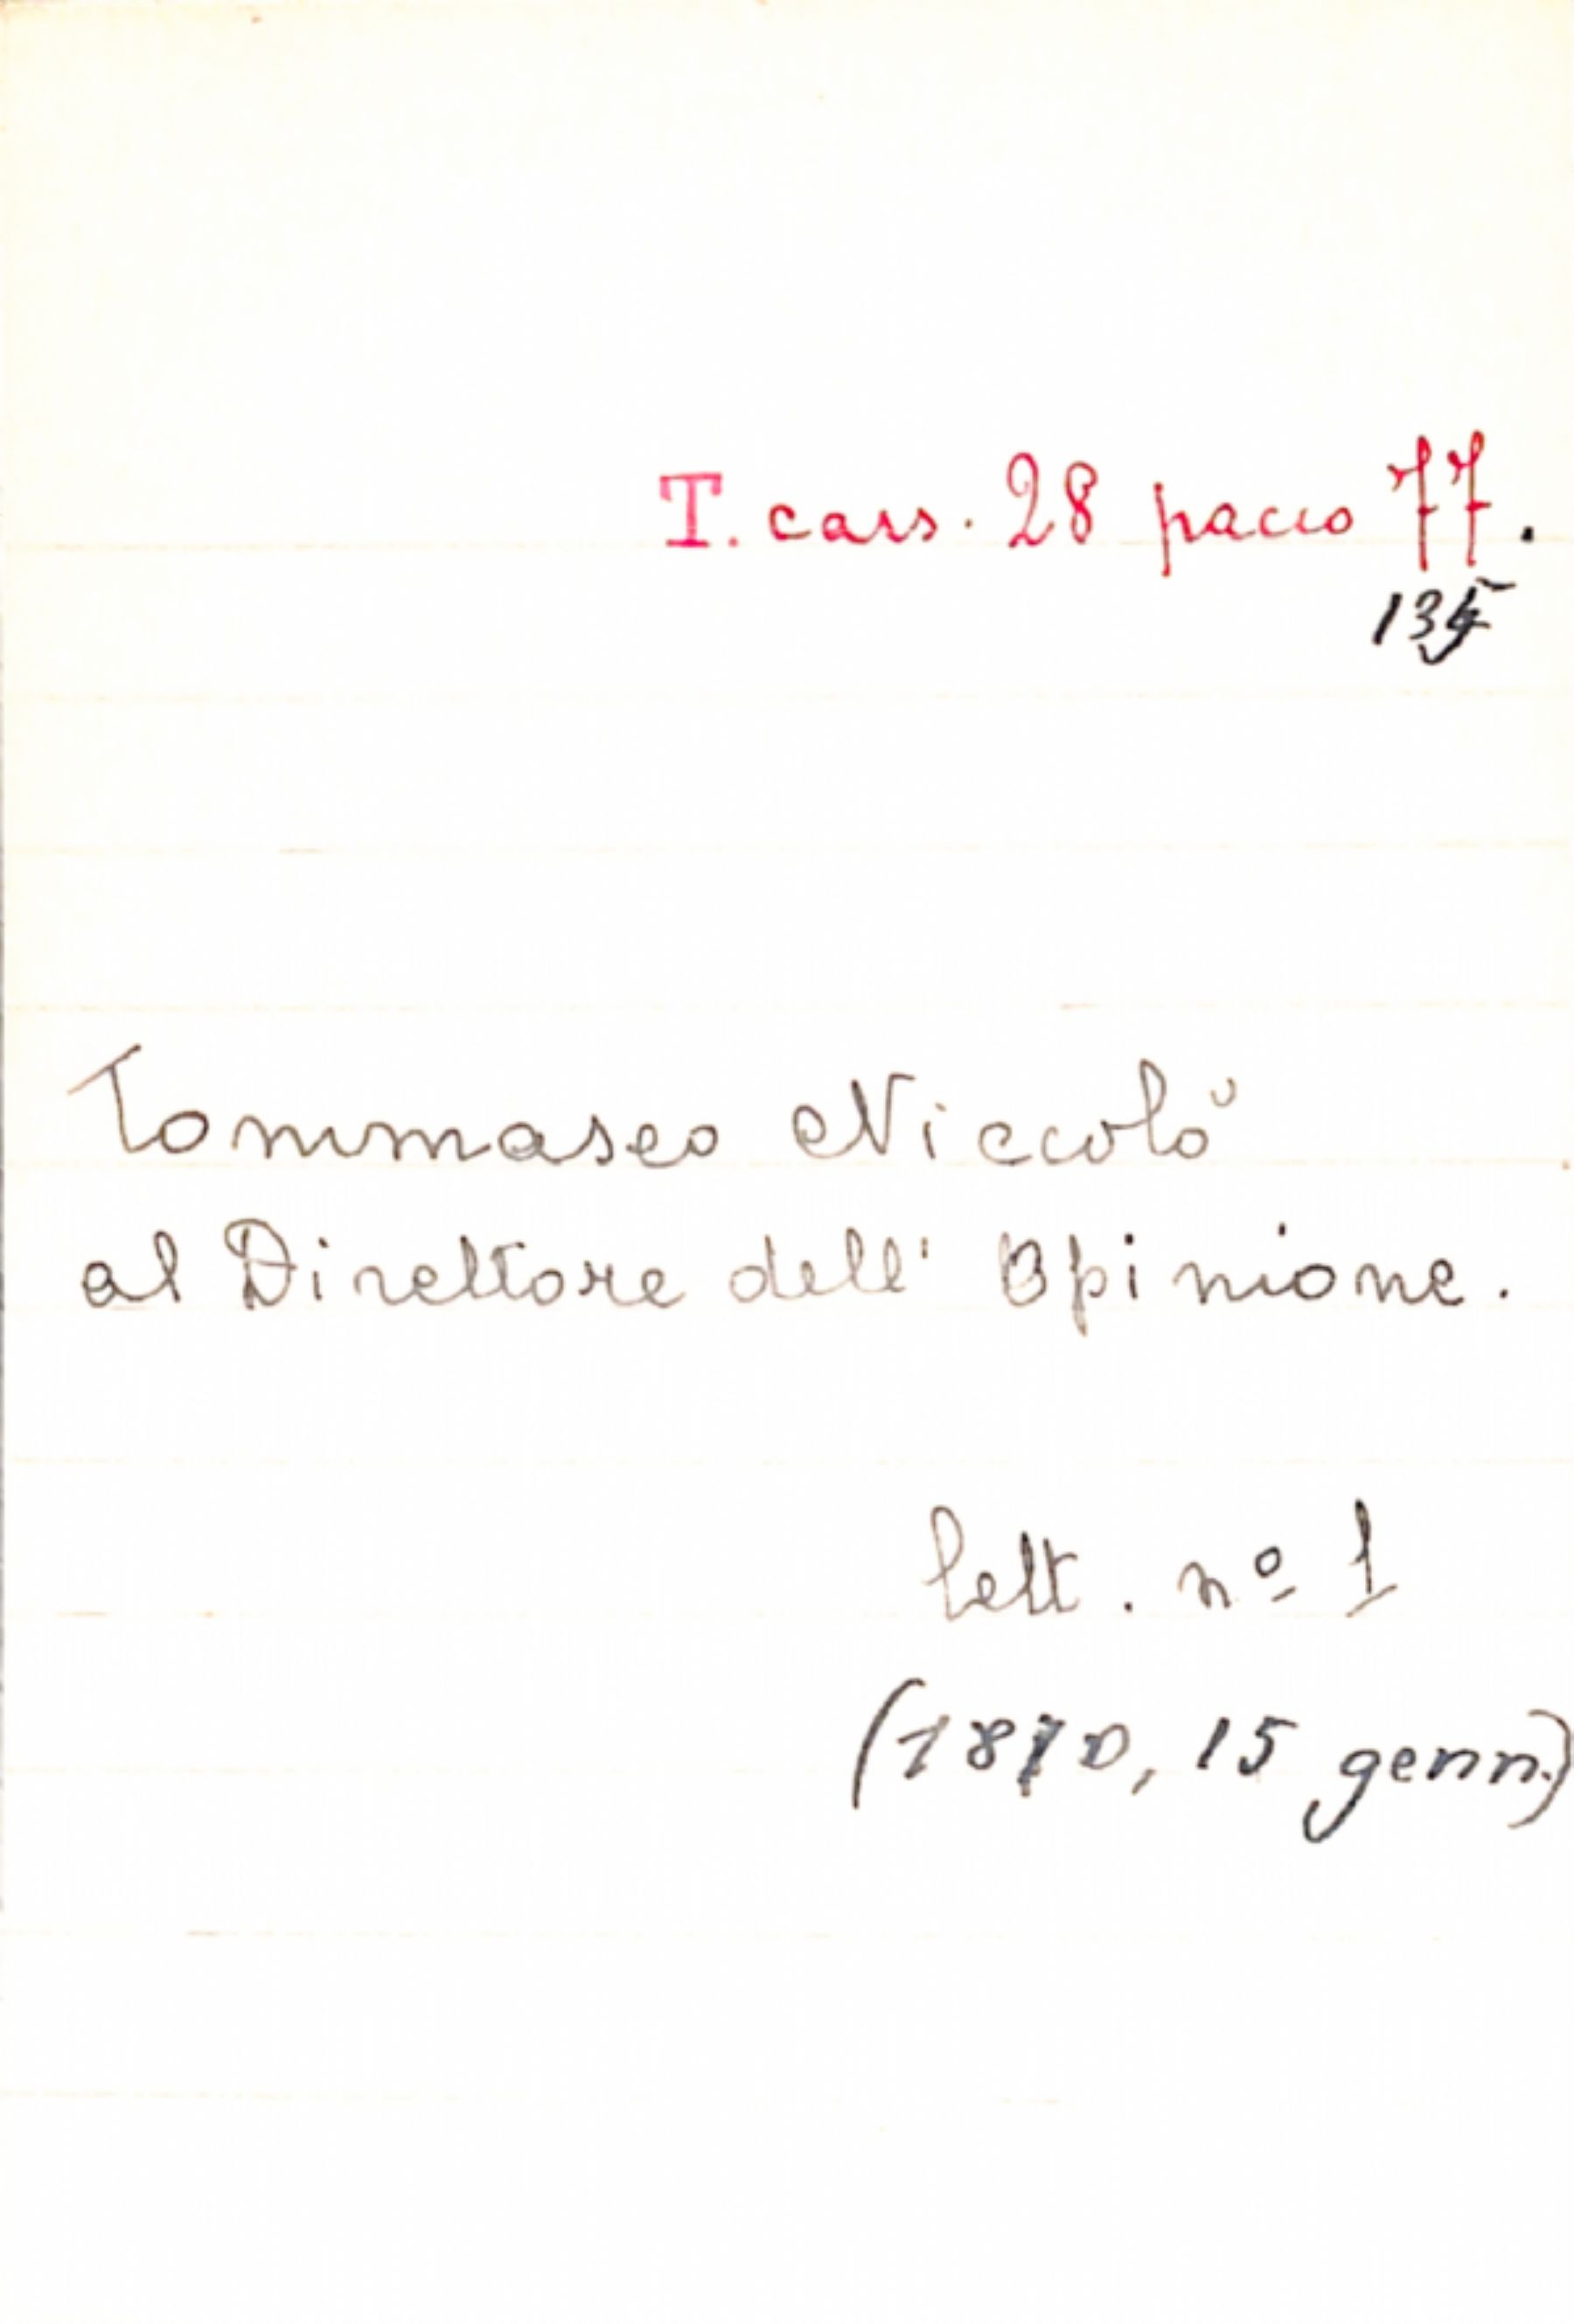 T. cass. 28 pacco 77.
135
Tommaseo Niccolò
al Direttore dell' Opinione.
lett. nº 1
(1870, 15 genn.)